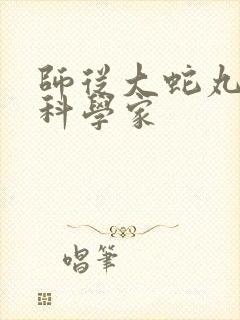 師從大蛇丸
科學家
唱筆